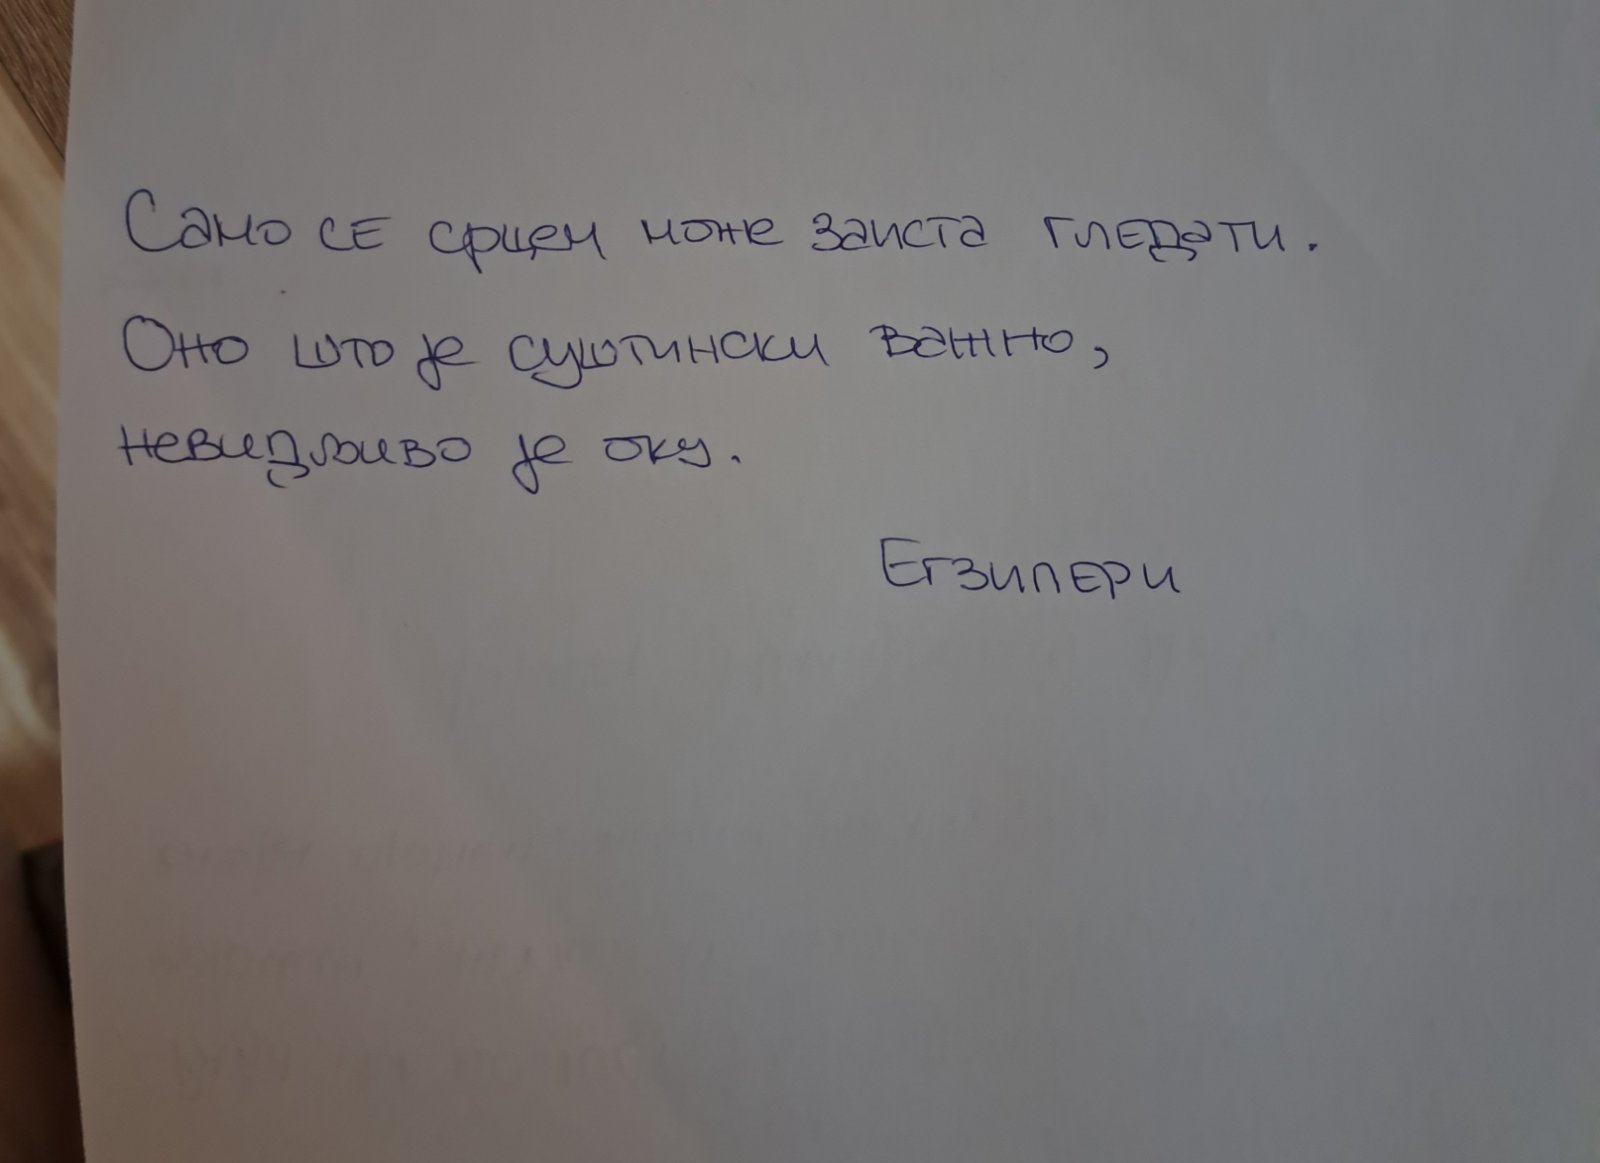 Само се срцем може заиста гледати.
Оно што је суштински важно,
невидљиво је оку.
Егзипери